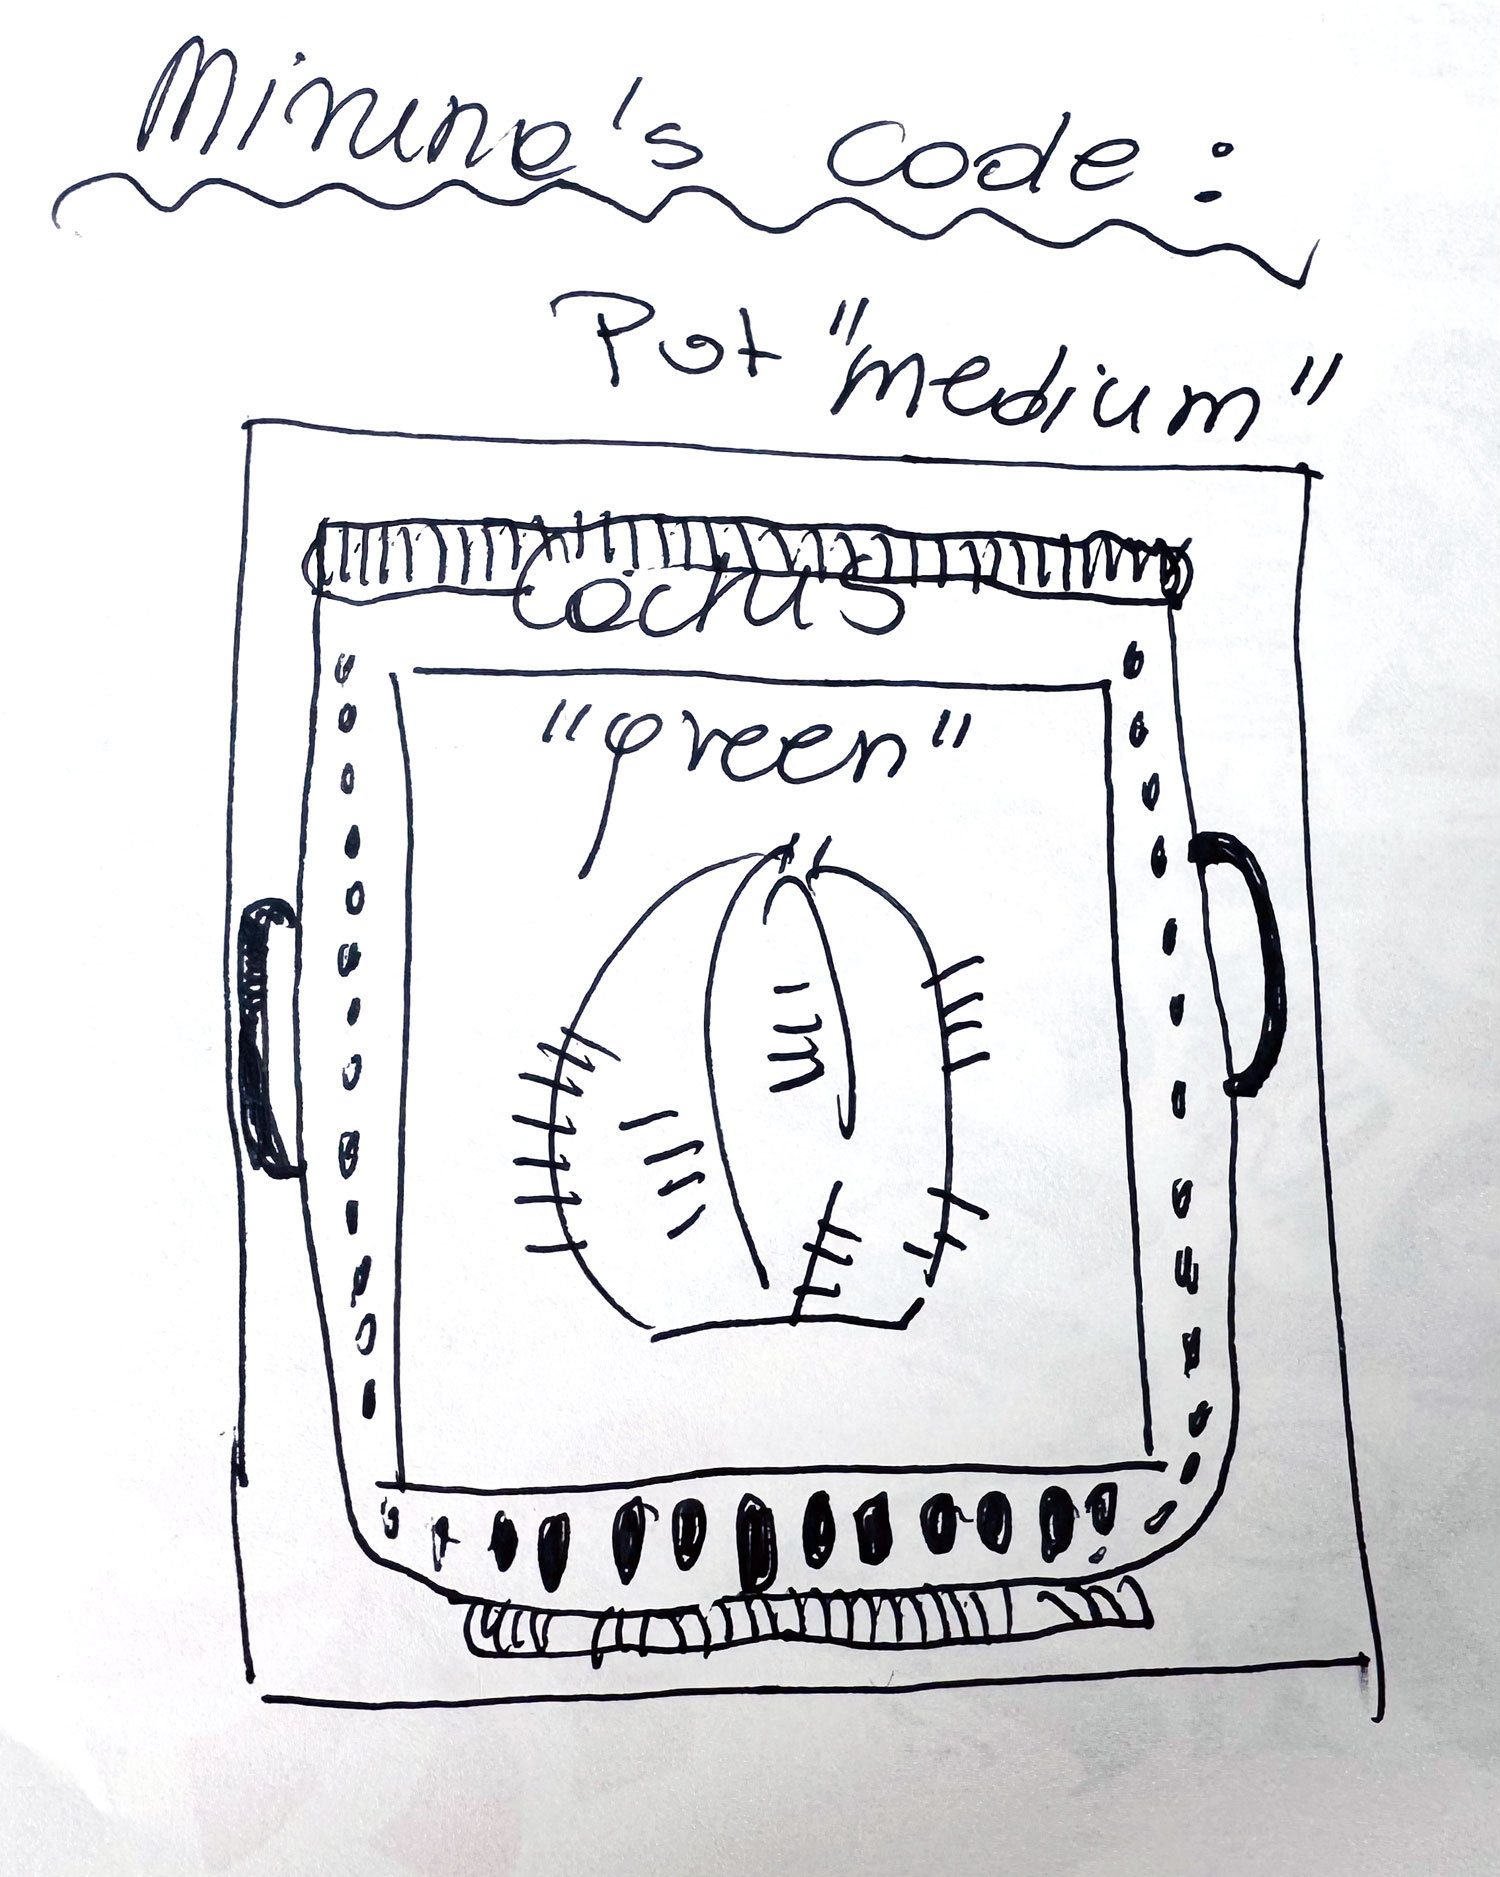 Minune's code:
Pot "medium"
Cactus
"green"